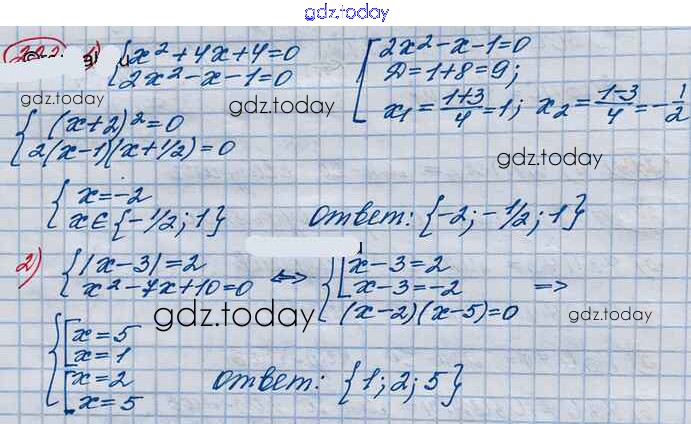 gdz.today
1) { x² + 4x + 4 = 0
2x² - x - 1 = 0
[ 2x² - x - 1 = 0
Д = 1 + 8 = 9;
x₁ = (1+3)/4 = 1; x₂ = (1-3)/4 = -1/2
gdz.today
gdz.today
gdz.today
{ (x+2)² = 0
2(x-1)(x+1/2) = 0
{ x = -2
x ∈ {-1/2; 1}
Ответ: {-2; -1/2; 1}
2) { |x-3| = 2
x² - 7x + 10 = 0
⟺ { [ x-3 = 2
x-3 = -2
(x-2)(x-5) = 0
=>
gdz.today
gdz.today
{ [ x = 5
x = 1
[ x = 2
x = 5
Ответ: {1; 2; 5}